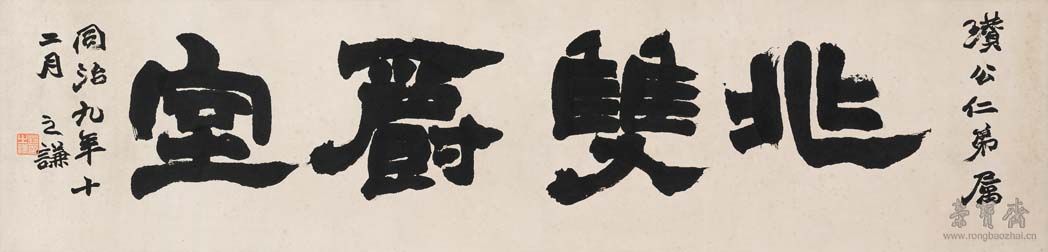 瓚公仁弟属
兆雙爵堂
同治九年十
二月 之謙
榮寶齋
www.rongbaozhai.cn